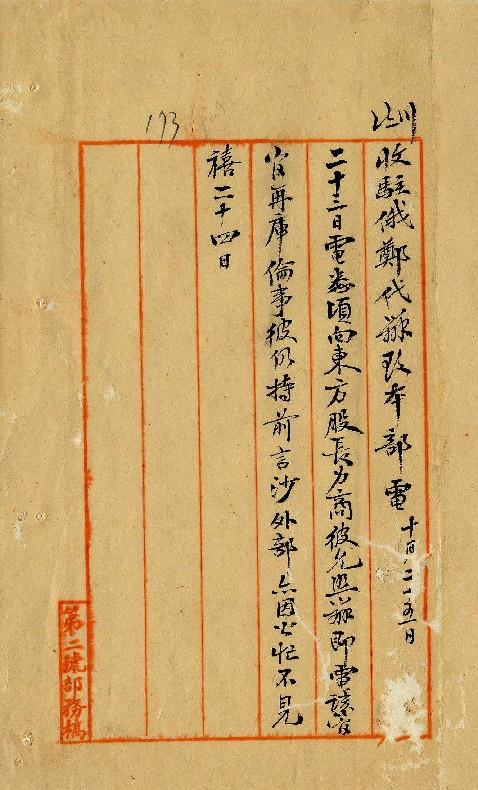 收駐俄鄭代辦致本部電 十一月二十五日
二十三日電悉頃向東方股長力商彼允照辦即電該官
官再庫倫事彼仍持前言沙外部亦因公忙不見
禧 二十四日
193
第二號部務稿